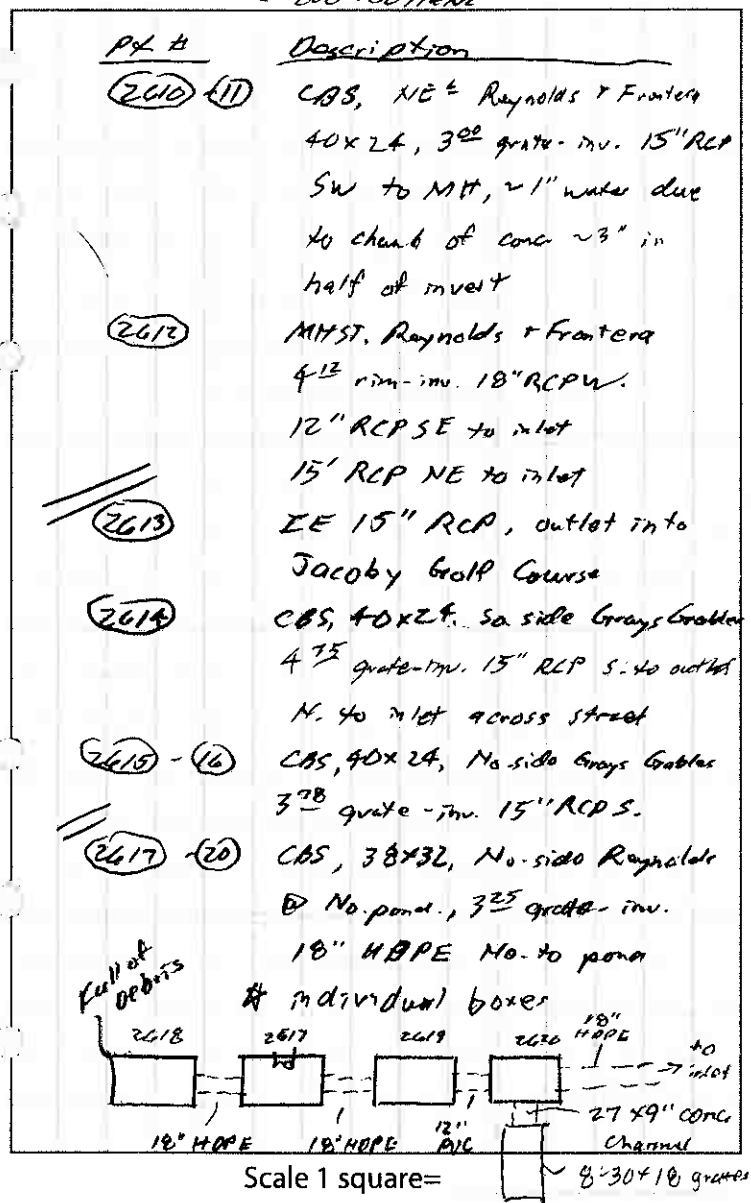 Pt # Description
2610-11 CBS, NE Reynolds + Frontera
40x24, 3 00 grate-inv. 15" RCP
SW to MH, ~1" water due
to chunk of conc ~3" in
half of invert
2612 MHST. Reynolds + Frontera
4 12 rim-inv. 18" RCP W.
12" RCP SE to inlet
15' RCP NE to inlet
2613 IE 15" RCP, outlet into
Jacoby Golf Course
2614 CBS, 40x24. So. side Grays Gables
4 75 grate-inv. 15" RCP S. to outlet
N. to inlet across street
2615-16 CBS, 40x24, No. side Grays Gables
3 78 grate-inv. 15" RCP S.
2617-20 CBS, 38x32, No. side Reynolds
@ No. pond., 3 25 grate-inv.
18" HDPE No. to pond
Full of
Debris
individual boxes
2618 2617 2619 2620 18"
HDPE
to
inlet
27 x9" conc
18" HDPE 18" HDPE 12"
PVC
Channel
Scale 1 square=
8-30+18 grates